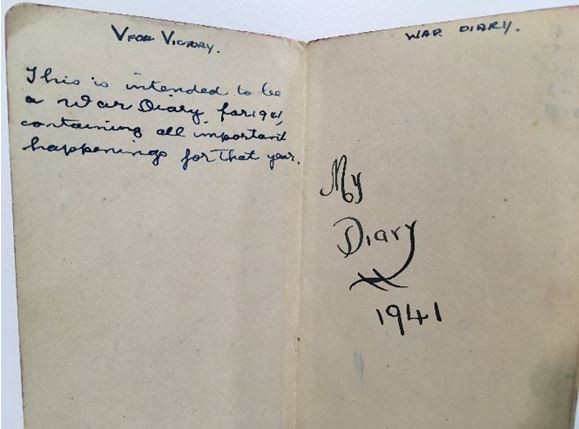 V FOR VICTORY.
This is intended to be
a War Diary, for 1941,
containing all important
happenings for that year.
WAR DIARY.
My
Diary
1941